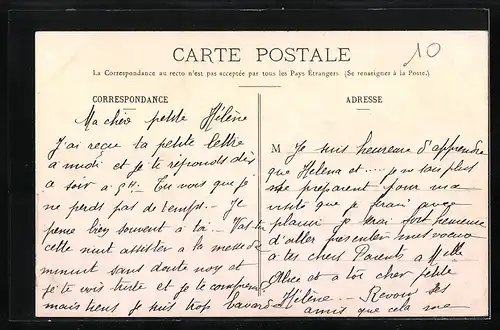 10
CARTE POSTALE
La Correspondance au recto n'est pas acceptée par tous les Pays Étrangers. (Se renseigner à la Poste.)
CORRESPONDANCE
ADRESSE
Ma chère petite Hélène
J'ai reçu ta petite lettre
à midi et je te réponds dès
ce soir à 8H. Tu vois que je
ne perds pas de temps. — Je
pense bien souvent à toi. — Vas tu
cette nuit assister à la messe de
minuit sans doute non et
je te vois triste et je te comprends
mais tiens je suis trop bavard
M
Je suis heureuse d'apprendre
que Helena et .... je ne sais plus
se préparent pour ma
visite que je ferai avec
plaisir je serai fort heureuse
d'aller présenter mes voeux
à tes chers Parents à Melle
Alice et à toi chère petite
Hélène. — Revoir ses
amis que cela me